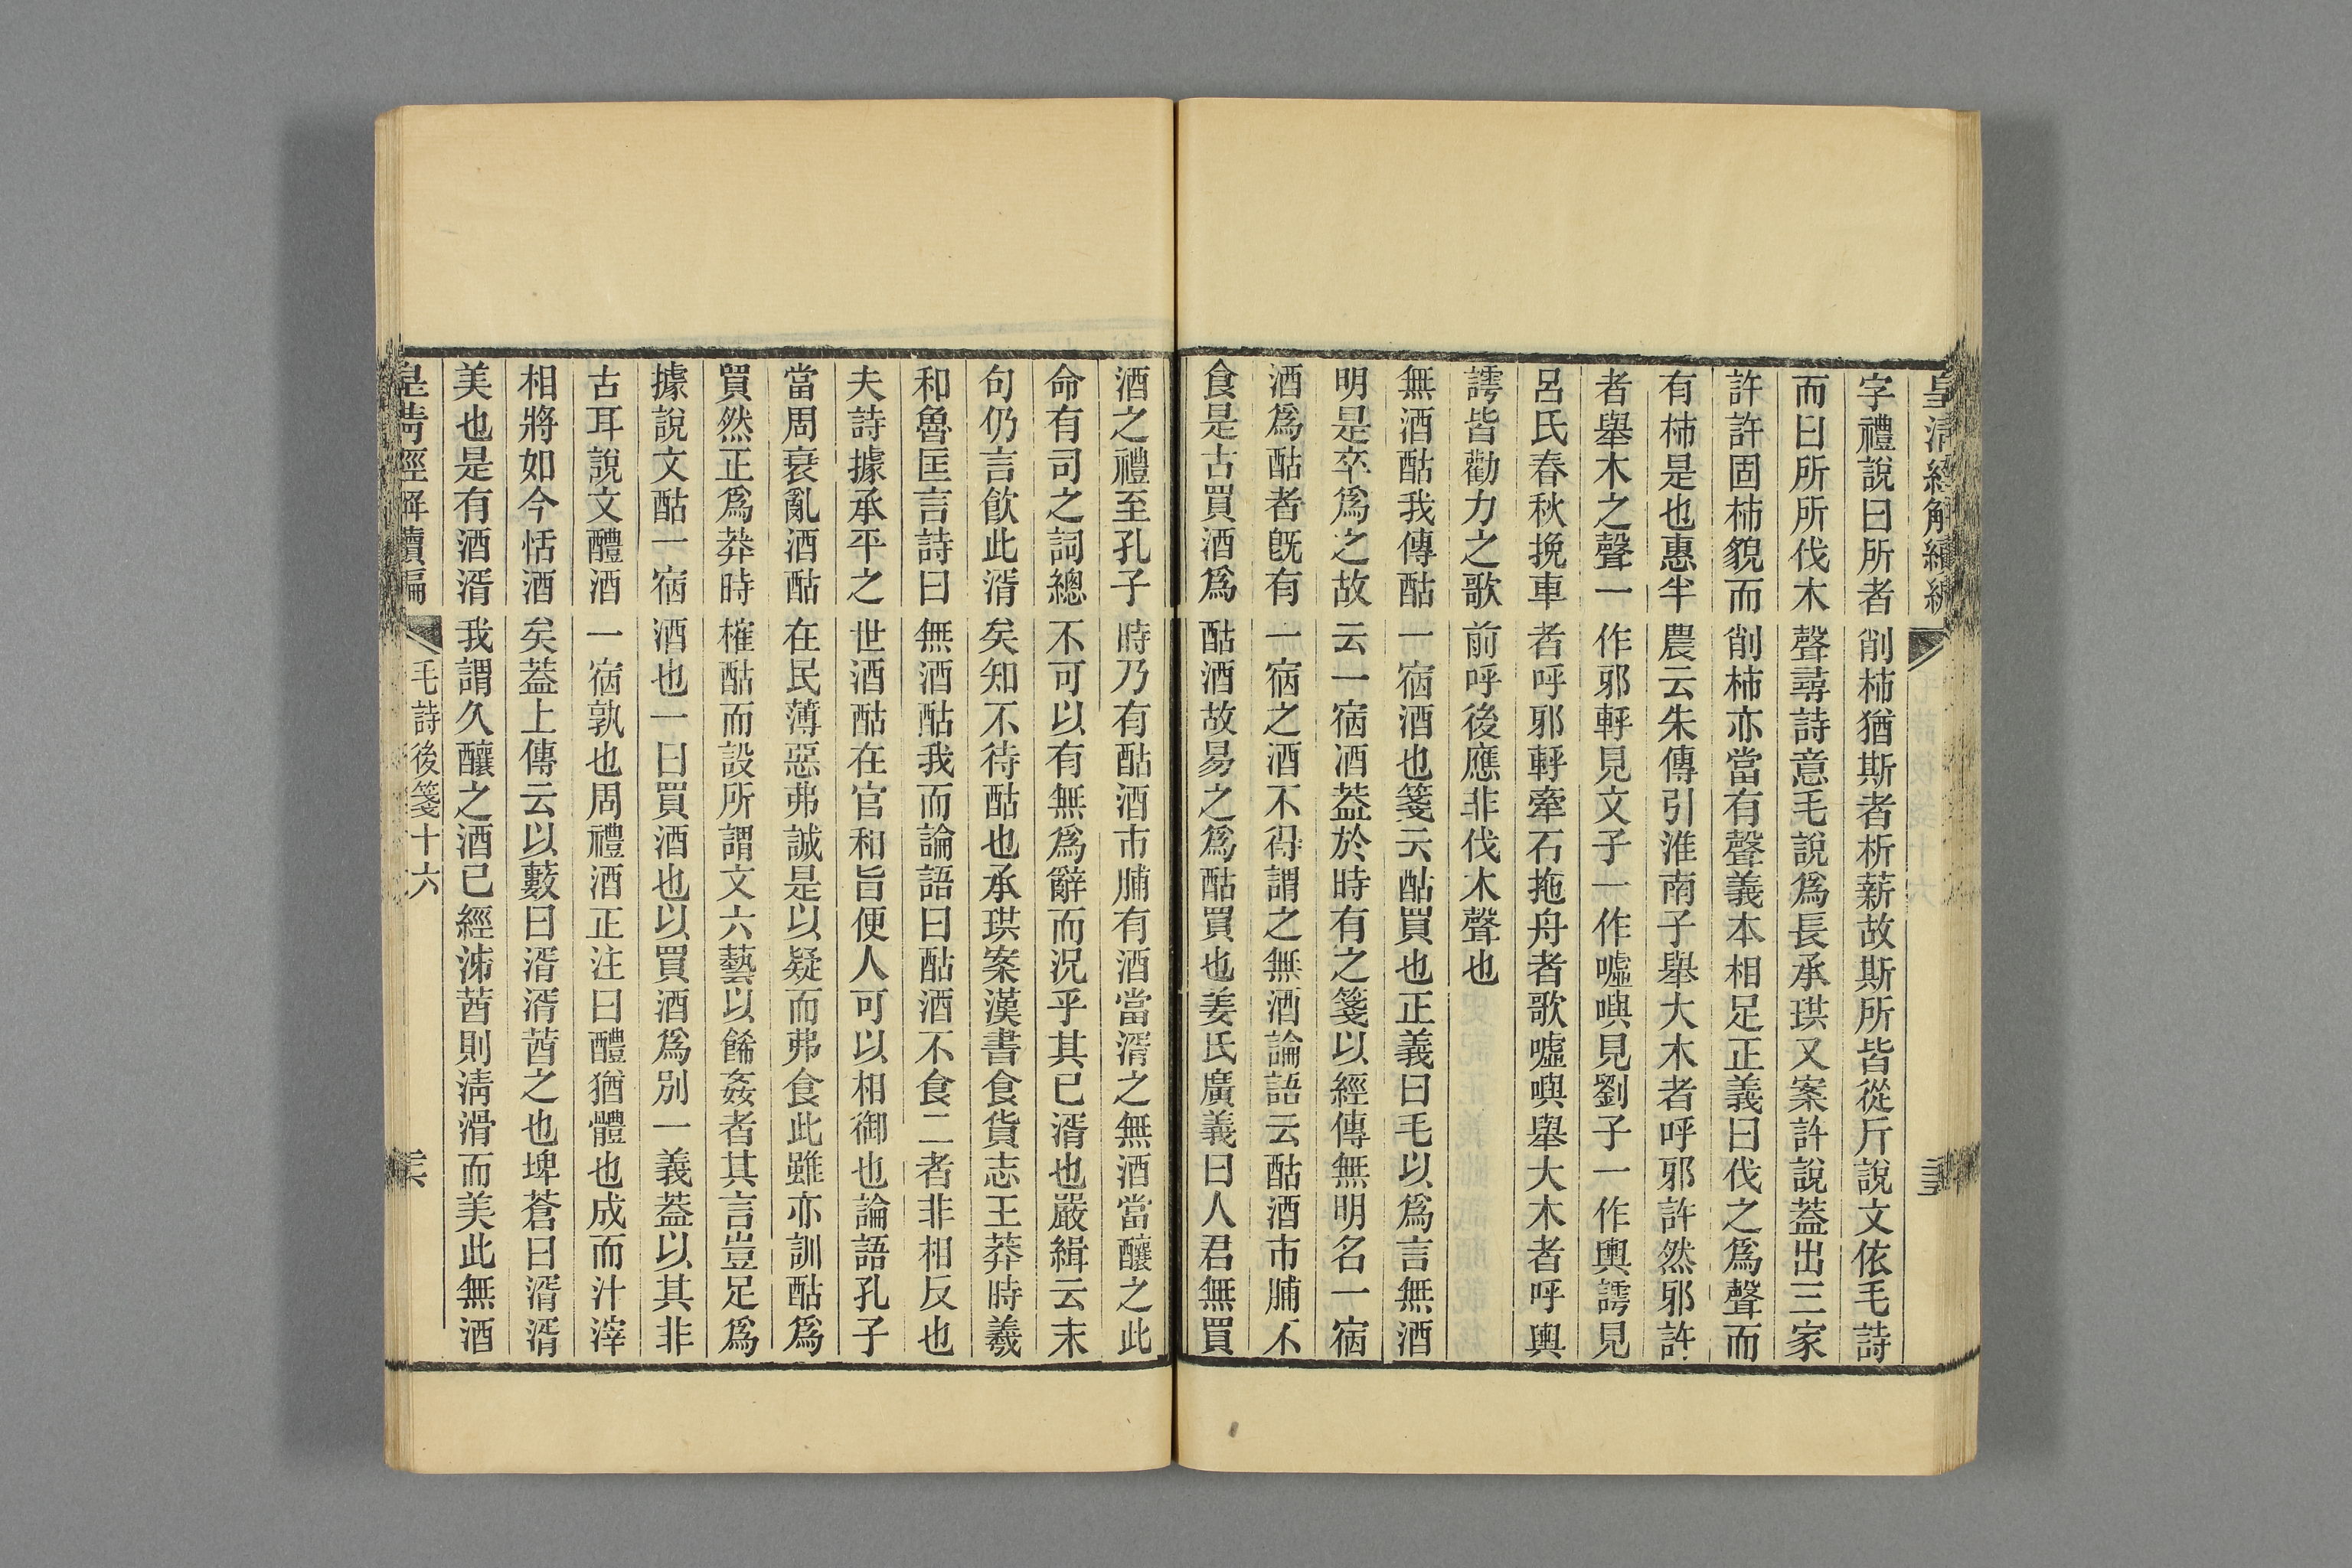 皇清經解續編
字禮說曰所者削柿猶斯者析薪故斯所皆從斤說文依毛詩
而曰所所伐木聲尋詩意毛說爲長承珙又案許說蓋出三家
許許固柿貌而削柿亦當有聲義本相足正義曰伐之爲聲而
有柿是也惠半農云朱傳引淮南子舉大木者呼邪許然邪許
者舉木之聲一作邪軤見文子一作噓嶼見劉子一作輿謣見
呂氏春秋挽車者呼邪軤牽石拖舟者歌噓嶼舉大木者呼輿
謣皆勸力之歌前呼後應非伐木聲也
無酒酤我傳酤一宿酒也箋云酤買也正義曰毛以爲言無酒
明是卒爲之故云一宿酒葢於時有之箋以經傳無明名一宿
酒爲酤者旣有一宿之酒不得謂之無酒論語云酤酒市脯不
食是古買酒爲酤酒故易之爲酤買也姜氏廣義曰人君無買
酒之禮至孔子時乃有酤酒市脯有酒當湑之無酒當釀之此
命有司之詞總不可以有無爲辭而況乎其已湑也嚴緝云末
句仍言飮此湑矣知不待酤也承珙案漢書食貨志王莽時羲
和魯匡言詩曰無酒酤我而論語曰酤酒不食二者非相反也
夫詩據承平之世酒酤在官和旨便人可以相御也論語孔子
當周衰亂酒酤在民薄惡弗誠是以疑而弗食此雖亦訓酤爲
買然正爲莽時榷酤而設所謂文六藝以餙姦者其言豈足爲
據說文酤一宿酒也一曰買酒也以買酒爲別一義葢以其非
古耳說文醴酒一宿孰也周禮酒正注曰醴猶體也成而汁滓
相將如今恬酒矣葢上傳云以藪曰湑湑莤之也埤蒼曰湑湑
美也是有酒湑我謂久釀之酒已經泲莤則淸滑而美此無酒
皇清經解續編 毛詩後箋十六